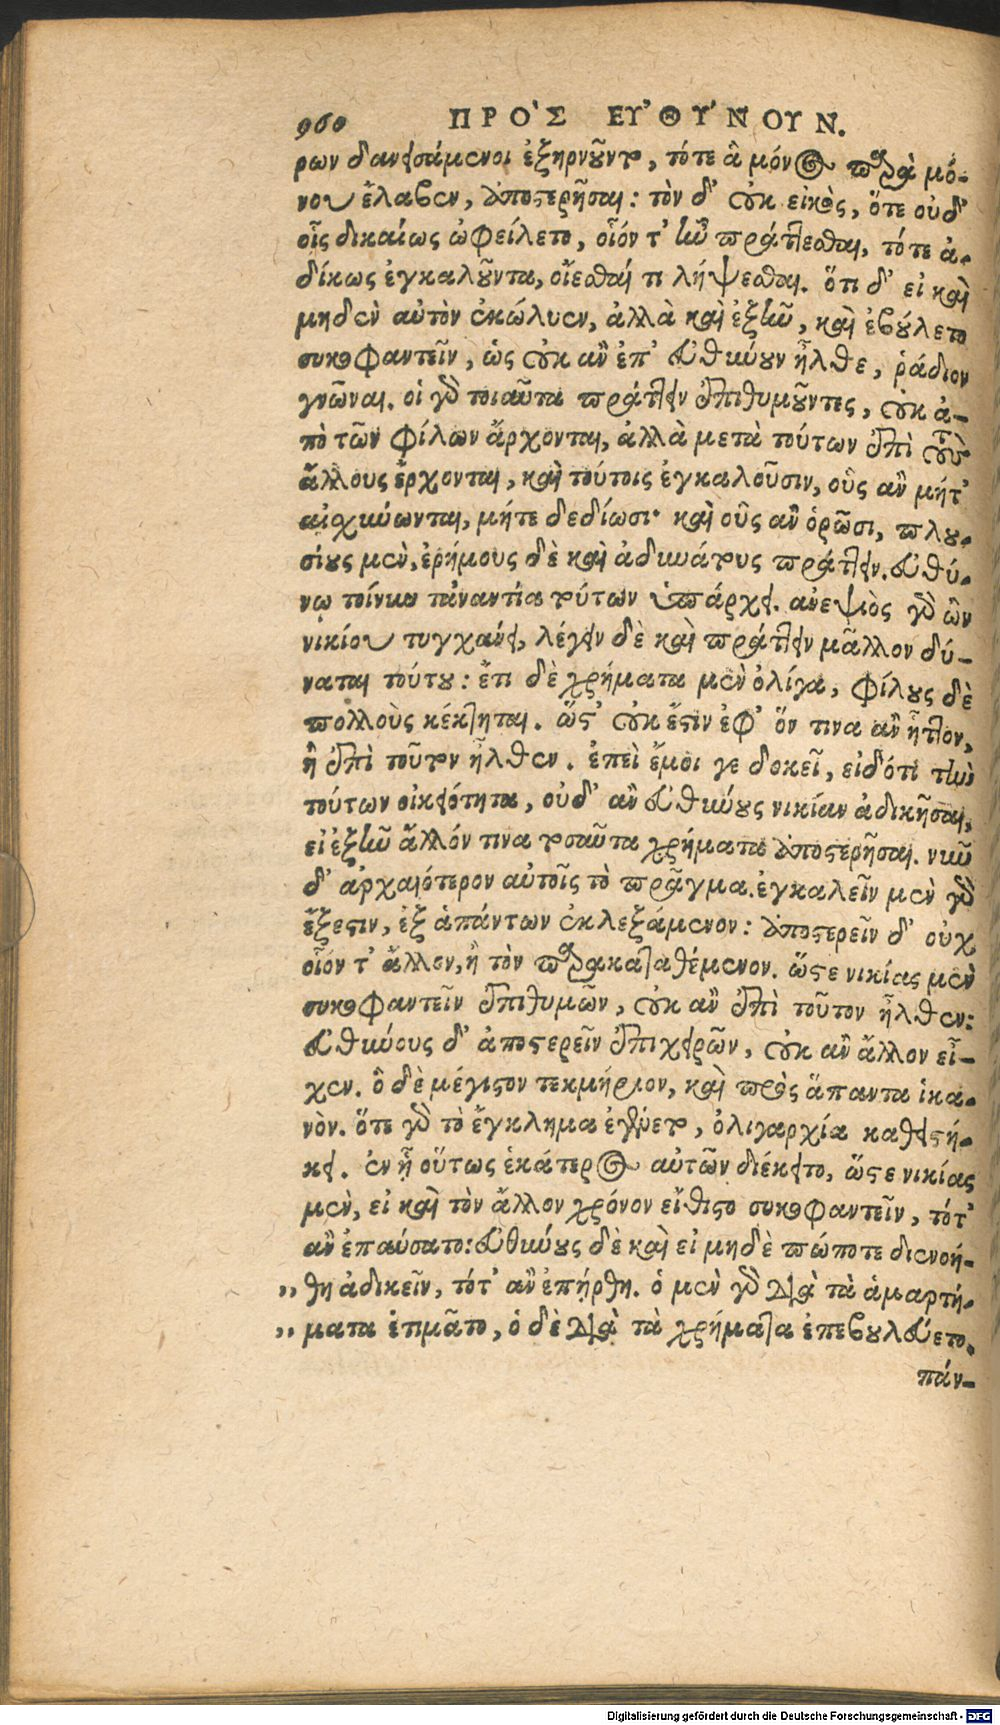 960 ΠΡΟ'Σ ΕΥ'ΘΥ'ΝΟΥΝ.
ρων δανεισάμενοι ἐξηρνοῦντο, τότε ἃ μόνος παρὰ μό-
νου ἔλαβεν, ἀποστερῆσαι: τὸν δ' οὐκ εἰκὸς, ὅτε οὐδ'
οἷς δικαίως ὠφείλετο, οἷόν τ' ἦν πράττεσθαι, τότε ἀ-
δίκως ἐγκαλοῦντα, οἴεσθαί τι λήψεσθαι. ὅτι δ' εἰ καὶ
μηδὲν αὐτὸν ἐκώλυεν, ἀλλὰ καὶ ἐξῆν, καὶ ἐβούλετο
συκοφαντεῖν, ὡς οὐκ ἂν ἐπ' Εὐθύνουν ἦλθε, ῥάδιον
γνῶναι. οἱ γὰρ τοιαῦτα πράττειν ἐπιθυμοῦντες, οὐκ ἀ-
πὸ τῶν φίλων ἄρχονται, ἀλλὰ μετὰ τούτων ἐπὶ τοὺς
ἄλλους ἔρχονται, καὶ τούτοις ἐγκαλοῦσιν, οὓς ἂν μήτ'
αἰσχύνωνται, μήτε δεδίωσι· καὶ οὓς ἂν ὁρῶσι, πλου-
σίους μὲν, ἐρήμους δὲ καὶ ἀδυνάτους πράττειν. Εὐθύ-
νῳ τοίνυν τἀναντία τούτων ὑπάρχει. ἀνεψιὸς γὰρ ὢν
νικίου τυγχάνει, λέγειν δὲ καὶ πράττειν μᾶλλον δύ-
ναται τούτου: ἔτι δὲ χρήματα μὲν ὀλίγα, φίλους δὲ
πολλοὺς κέκτηται. ὥστ' οὐκ ἔστιν ἐφ' ὅν τινα ἂν ἧττον,
ἢ ἐπὶ τοῦτον ἦλθεν. ἐπεὶ ἔμοι γε δοκεῖ, εἰδότι τὴν
τούτων οἰκειότητα, οὐδ' ἂν Εὐθύνους νικίαν ἀδικῆσαι,
εἰ ἐξῆν ἄλλόν τινα τοσαῦτα χρήματα ἀποστερῆσαι. νῦν
δ' ἀρχαιότερον αὐτοῖς τὸ πρᾶγμα. ἐγκαλεῖν μὲν γὰρ
ἔξεστιν, ἐξ ἁπάντων ἐκλεξάμενον: ἀποστερεῖν δ' οὐχ
οἷόν τ' ἄλλον, ἢ τὸν παρακαταθέμενον. ὥστε νικίας μὲν
συκοφαντεῖν ἐπιθυμῶν, οὐκ ἂν ἐπὶ τοῦτον ἦλθεν:
Εὐθύνους δ' ἀποστερεῖν ἐπιχειρῶν, οὐκ ἂν ἄλλον εἶ-
χεν. ὃ δὲ μέγιστον τεκμήριον, καὶ πρὸς ἅπαντα ἱκα-
νὸν. ὅτε γὰρ τὸ ἔγκλημα ἐγένετο, ὀλιγαρχία καθειστή-
κει. ἐν ᾗ οὕτως ἑκάτερος αὐτῶν διέκειτο, ὥστε νικίας
μὲν, εἰ καὶ τὸν ἄλλον χρόνον εἴθιστο συκοφαντεῖν, τότ'
ἂν ἐπαύσατο: Εὐθύνους δὲ καὶ εἰ μηδὲ πώποτε διενοή-
" θη ἀδικεῖν, τότ' ἂν ἐπήρθη. ὁ μὲν γὰρ διὰ τὰ ἁμαρτή-
" ματα ἐτιμᾶτο, ὁ δὲ διὰ τὰ χρήματα ἐπεβουλεύετο.
πάν-
Digitalisierung gefördert durch die Deutsche Forschungsgemeinschaft - DFG